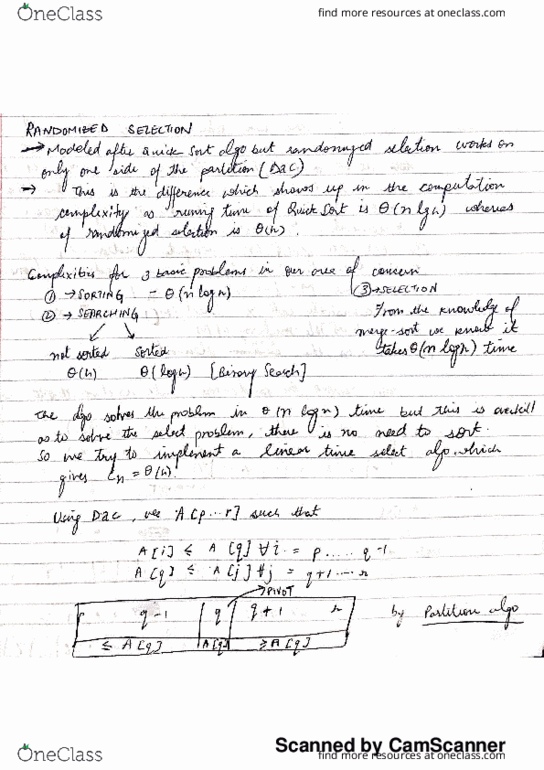 OneClass
find more resources at oneclass.com
RANDOMIZED SELECTION
→ Modeled after Quick Sort algo but randomized selection works on
only one side of the partition (DaC)
→ This is the difference which shows up in the computation
complexity as runing time of Quick Sort is θ(n lg n) whereas
of randomized selection is θ(n).
Complexities for 3 basic problems in our area of concern
① → SORTING = θ(n log n)
③ → SELECTION
② → SEARCHING
From the knowledge of
merge-sort we know it
not sorted sorted
takes θ(n log n) time
θ(n) θ(log n) [Binary Search]
The algo solves the problem in θ(n log n) time but this is overkill
as to solve the select problem, there is no need to sort.
So we try to implement a linear time select algo which
gives = θ(n).
Using DaC, use A[p...r] such that
A[i] ≤ A[q] ∀i = p ..... q-1
A[q] ≤ A[j] ∀j = q+1 .... r
→ PIVOT
q-1 q q+1 r
by Partition algo
≤ A[q] A[q] ≥ A[q]
Scanned by CamScanner
OneClass
find more resources at oneclass.com